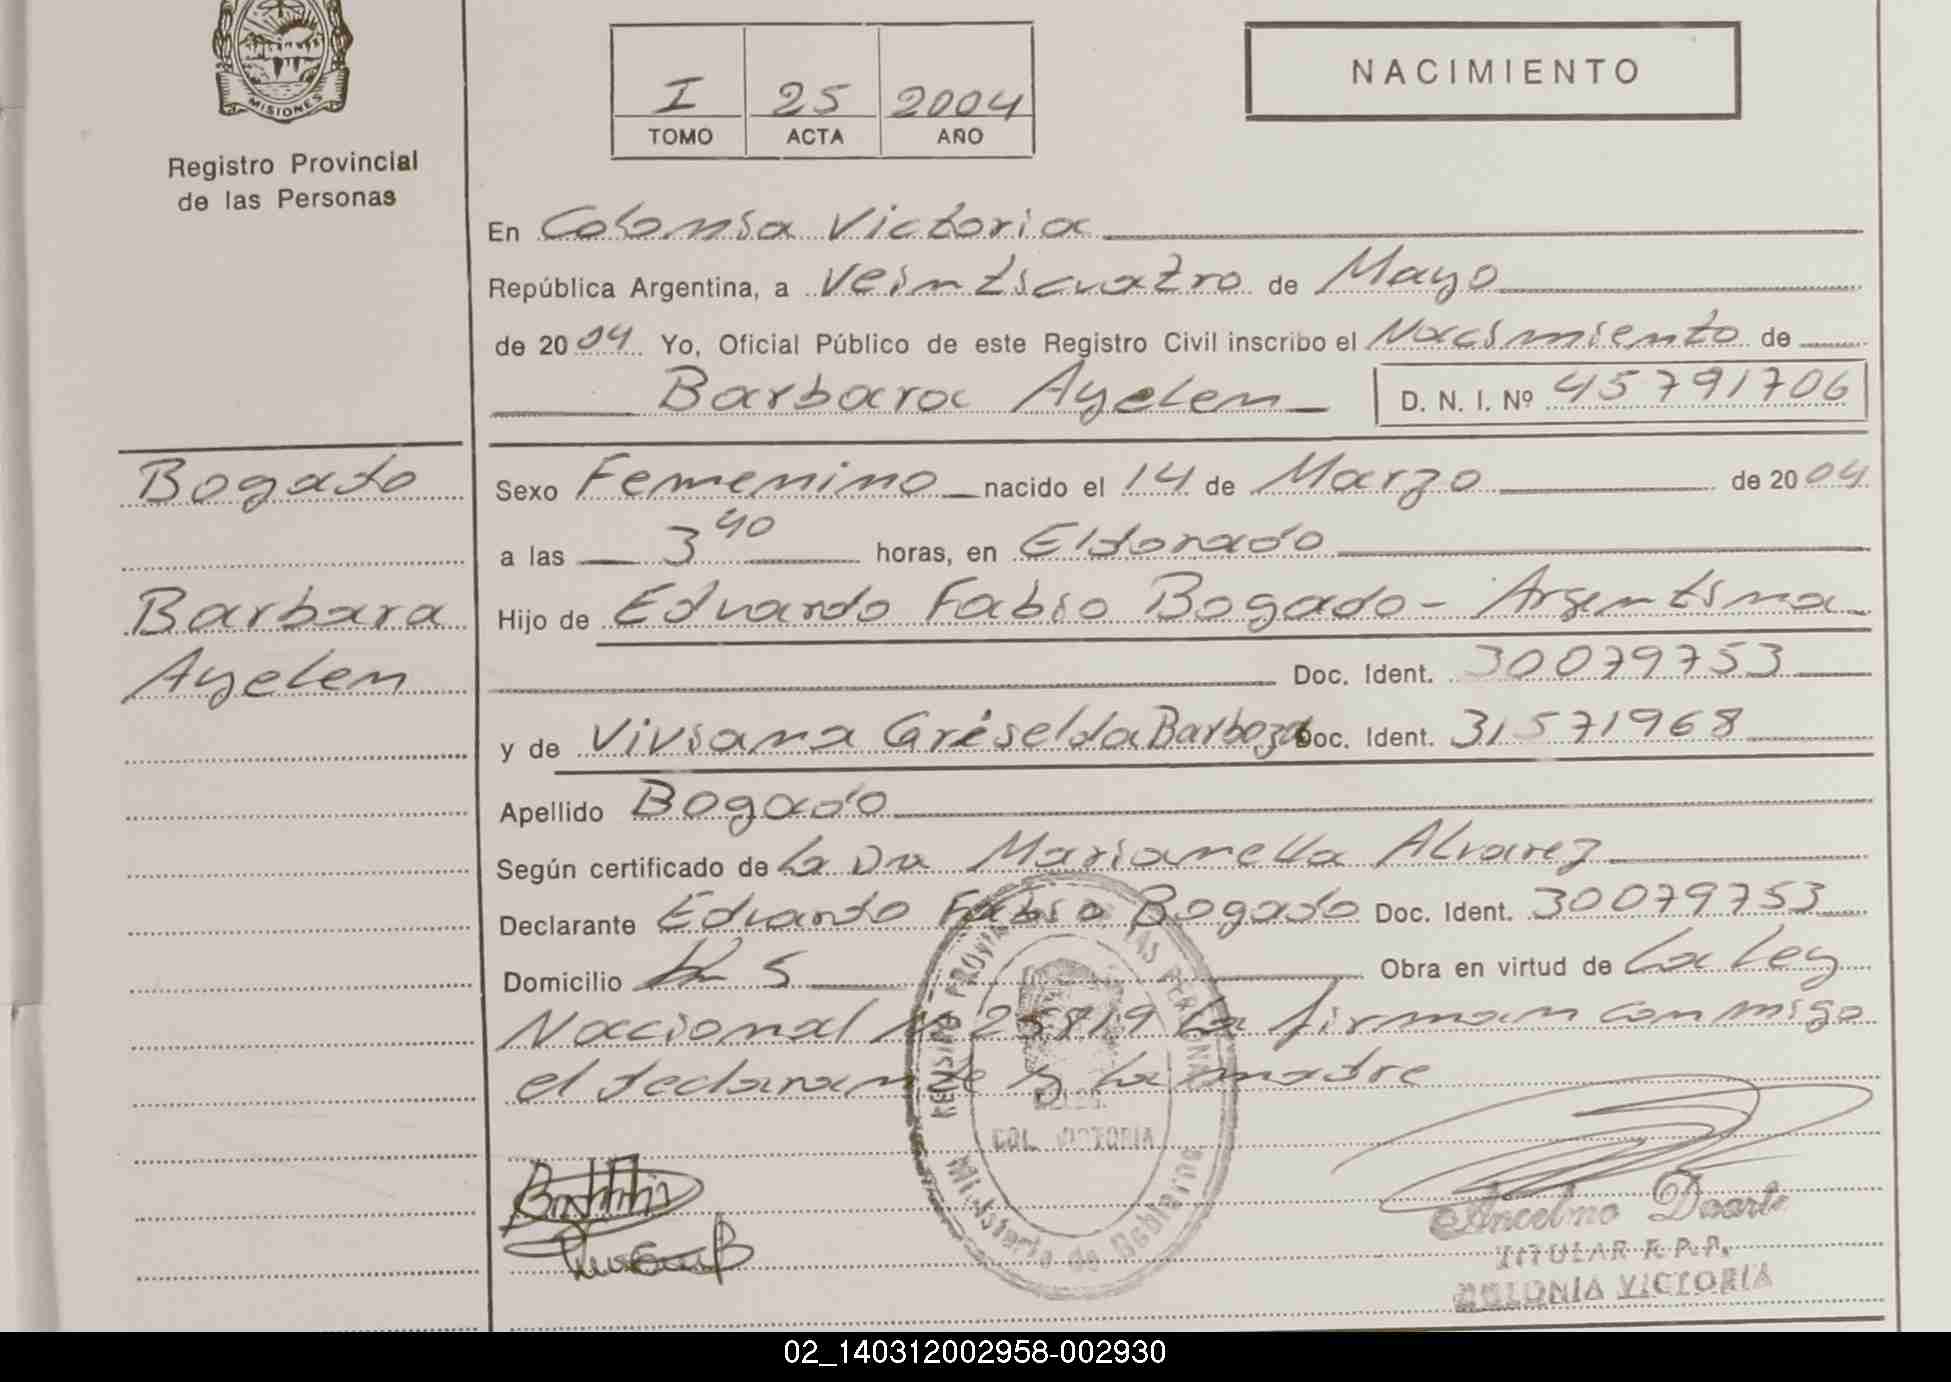 MISIONES
Registro Provincial
de las Personas
I 25 2004
TOMO ACTA AÑO
NACIMIENTO
En Colonia Victoria
República Argentina, a Veinticuatro de Mayo
de 2004 Yo, Oficial Público de este Registro Civil inscribo el Nacimiento de
Barbara Ayelem D. N. I. Nº 45791706
Bogado
Barbara
Ayelem
Sexo Femenino nacido el 14 de Marzo de 2004
a las 3 40 horas, en Eldorado
Hijo de Eduardo Fabio Bogado - Argentina
Doc. Ident. 30079753
y de Viviana Griselda Barboza Doc. Ident. 31571968
Apellido Bogado
Según certificado de la Dra Marianella Alvarez
Declarante Eduardo Fabio Bogado Doc. Ident. 30079753
Domicilio Km 5 Obra en virtud de La Ley
Nacional N 25819 La firman conmigo
el declarante y la madre
COL. VICTORIA
Ministerio de Gobierno
Ancelmo Duarte
TITULAR R.P.P.
COLONIA VICTORIA
02_140312002958-002930